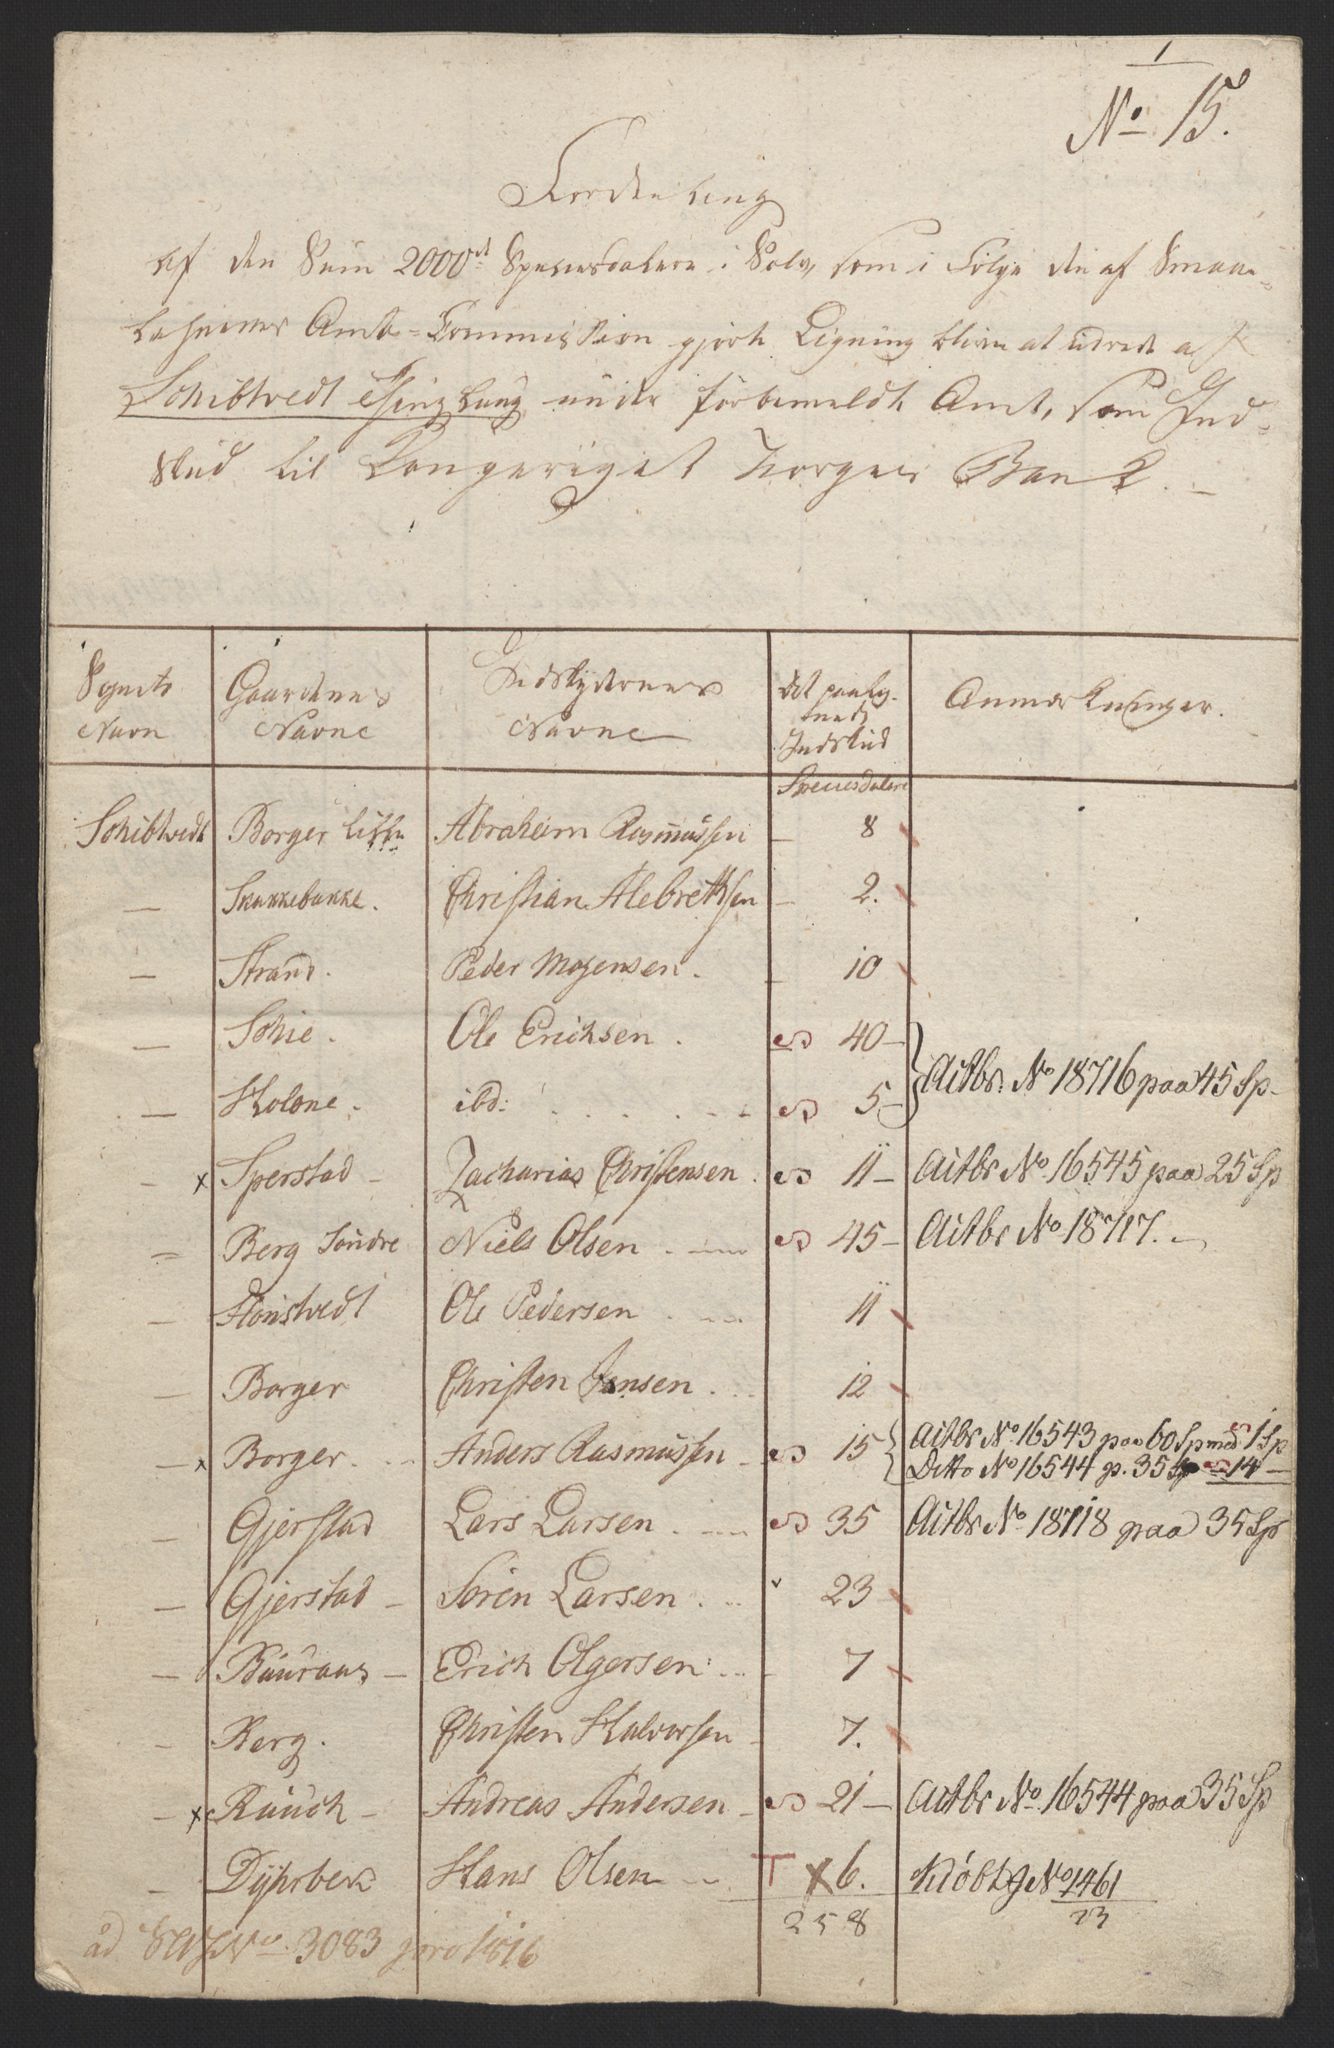 1
No 15.
Fordeeling
af den Sum 2000de Speciesdalere i Sølv, som i Følge den af Smaae-
lehnenes Amts-Commission gjorte Ligning bliver at udrede af
Schibtvedt Thinglaug under forbemeldte Amt, som Ind-
skud til Kongeriget Norges Bank. —
Sognets Navn | Gaardenes Navne | Indskydernes Navne | Det paalig- nede Indskud | Anmærkninger.
Speciesdalere
Schibtvedt | Borger lille | Abraham Rasmussen — 8
— Skakkebakke. | Christian Alebrethsen — 2.
— Strand. | Peder Mogensen. — 10
— Schie. | Ole Erichsen. 40 —
— Holone. | ibd: 5 — } Qitbr. No 18716 paa 45 Sp.
— x Sperstad — | Zacharias Christensen. 11 — Qitbr No 16545 paa 25 Sp
— Berg Søndre | Niels Olsen. — 45 — Qitbr No 18717. —
— Honstvedt | Ole Pedersen. 11
— Borger | Christen Jensen. 12
— x Borger. | Anders Rasmussen — 15 { Qitbr No 16543 paa 60 Sp med 1 Sp
Ditto No 16544 p. 35 Sp 14 —
— Gjerstad | Lars Larsen. — 35 Qitbr No 18718 paa 35 Sp
— Gjerstad — | Søren Larsen. 23
— Buuraas — | Erich Olgersen: 7
— Berg. | Christen Halvorsen — 7.
— x Ruuch — | Andreas Andersen — 21 — Qitbr No 16544 paa 35 Sp
— Dyhrbek | Hans Olsen — T x 6. Kiöbt No 1461
23
258
ad No 3083 pro 1816